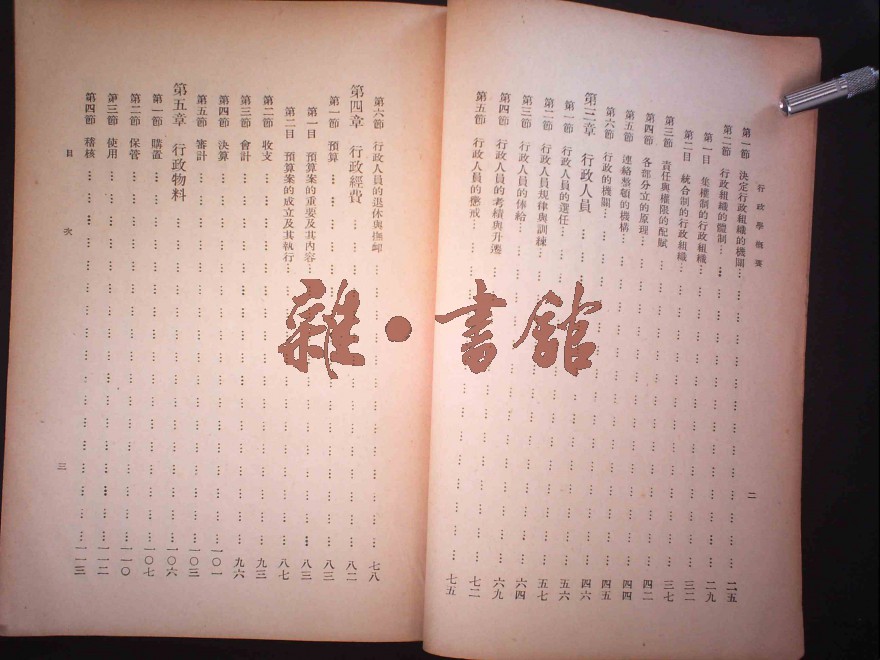 行政學概要
二
第一節 決定行政組織的機關 二五
第二節 行政組織的體制 二九
第一目 集權制的行政組織 三二
第二目 統合制的行政組織 三七
第三節 責任與權限的配賦 四二
第四節 各部分立的原理 四四
第五節 連絡整頓的機構 四五
第六節 行政的機關
第三章 行政人員 四六
第一節 行政人員的選任 五六
第二節 行政人員規律與訓練 五七
第三節 行政人員的俸給 六四
第四節 行政人員的考績與升遷 六九
第五節 行政人員的懲戒 七二
七五
第六節 行政人員的退休與撫卹 七八
第四章 行政經費 八二
第一節 預算 八三
第一目 預算案的重要及其內容 八三
第二目 預算案的成立及其執行 八七
第二節 收支 九三
第三節 會計 九六
第四節 決算 一〇一
第五節 審計 一〇三
第五章 行政物料 一〇六
第一節 購置 一〇七
第二節 保管 一一〇
第三節 使用 一一二
第四節 稽核 一一三
目次
三
雜·書館